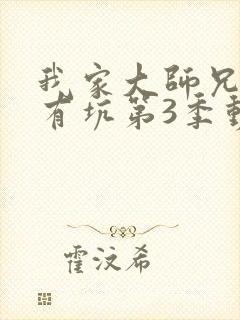 我家大師兄
有坑第3季動
霍汶希